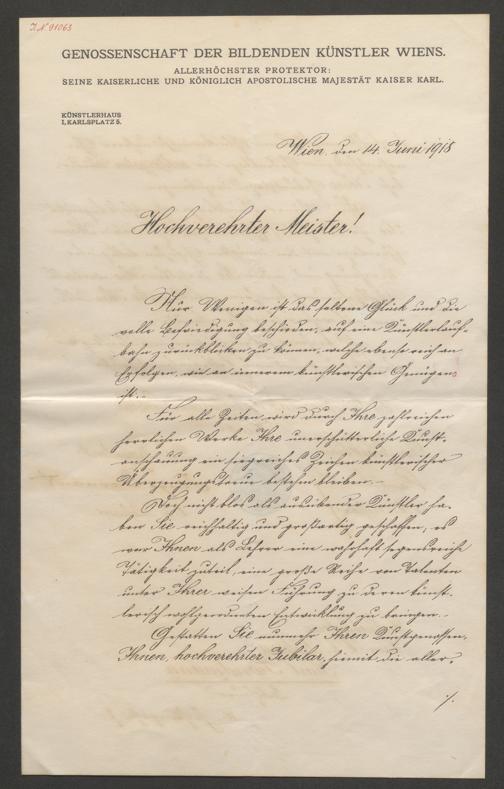 I.N. 91063
GENOSSENSCHAFT DER BILDENDEN KÜNSTLER WIENS.
ALLERHÖCHSTER PROTEKTOR:
SEINE KAISERLICHE UND KÖNIGLICH APOSTOLISCHE MAJESTÄT KAISER KARL.
KÜNSTLERHAUS
I, KARLSPLATZ 5.
Wien, den 14. Juni 1918
Hochverehrter Meister!
Nur Wenigen ist das seltene Glück und die
volle Befriedigung beschieden, auf eine Künstlerlauf-
bahn zurückblicken zu können, welche ebenso reich an
Erfolgen, wie an innerem künstlerischen Genügen
ist.
Für alle Zeiten wird durch Ihre zahlreichen
herrlichen Werke Ihre unerschütterliche Kunst-
anschauung ein siegreiches Zeichen künstlerischer
Überzeugungstreue bestehen bleiben.
Doch nicht blos als ausübender Künstler ha-
ben Sie reichhaltig und großartig geschaffen, es
war Ihnen als Lehrer eine wahrhaft segensreiche
Tätigkeit zuteil, eine große Reihe von Talenten
unter Ihrer weisen Führung zu deren künst-
lerisch Entwicklung zu bringen.
Gestatten Sie nunmehr Ihren Kunstgenossen,
Ihnen, hochverehrter Jubilar, hiemit die aller-
./.